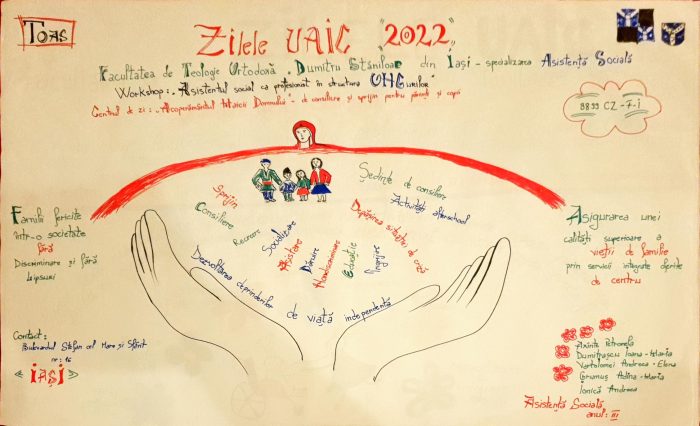 TOAS
Zilele UAIC "2022"
Facultatea de Teologie Ortodoxă „Dumitru Stăniloae" din Iași - specializarea Asistență Socială
Workshop: „Asistentul social ca profesionist în structura ONG-urilor"
Centrul de zi: „Acoperământul Maicii Domnului" - de consiliere și sprijin pentru părinți și copii
8899 CZ - F - I
Ședințe de consiliere
Activități afterschool
Sprijin
Consiliere
Recreere
Socializare
Asistare
Dăruire
Nondiscriminare
Educație
Îngrijire
Depășirea situației de criză
Dezvoltarea deprinderilor de viață independentă
Familii fericite
într-o societate
fără
Discriminare și fără
lipsuri
Asigurarea unei
calități superioare a
vieții de familie
prin servicii integrate oferite
de centru
Contact:
Bulevardul Ștefan cel Mare și Sfânt
nr: 16
«IAȘI»
Axinte Petronela
Dumitrașcu Ioana-Maria
Vartolomei Andreea-Elena
Grumuș Adina-Maria
Ionică Andreea
Asistență Socială
anul: III